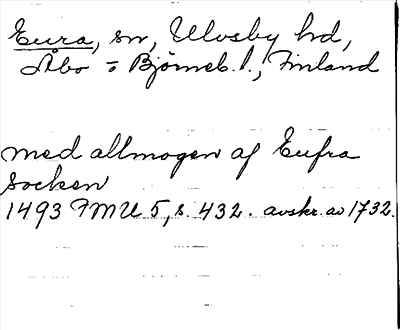 Eura, sn, Ulvsby hd,
Åbo o Björneb. l., Finland
med allmogen af Eufra
socken
1493 FMU 5, s. 432. avskr. av 1732.